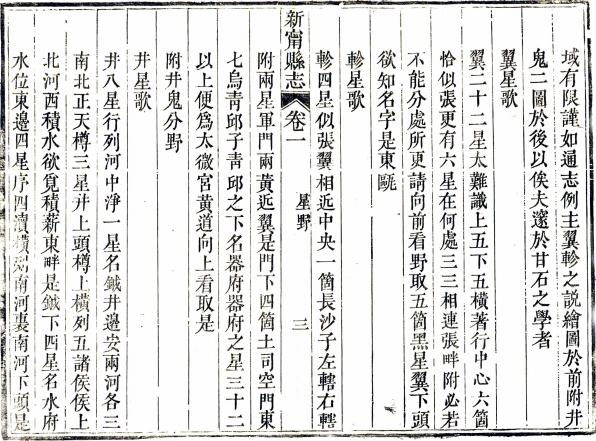 域有限謹如通志例主翼軫之說繪圖於前附井
鬼二圖於後以俟夫邃於甘石之學者
翼星歌
翼二十二星太難識上五下五橫著行中心六箇
恰似張更有六星在何處三三相連張畔附必若
不能分處所更請向前看野取五箇黑星翼下頭
欲知名字是東甌
軫星歌
軫四星似張翼相近中央一箇長沙子左轄右轄
新甯縣志 卷一 星野 三
附兩星軍門兩黃近翼是門下四箇土司空門東
七烏青邱子青邱之下名器府器府之星三十二
以上便爲太微宮黃道向上看取是
附井鬼分野
井星歌
井八星行列河中淨一星名鉞井邊安兩河各三
南北正天樽三星井上頭樽上橫列五諸侯侯上
北河西積水欲覓積薪東畔是鉞下四星名水府
水位東邊四星序四瀆橫列南河裏南河下頭是